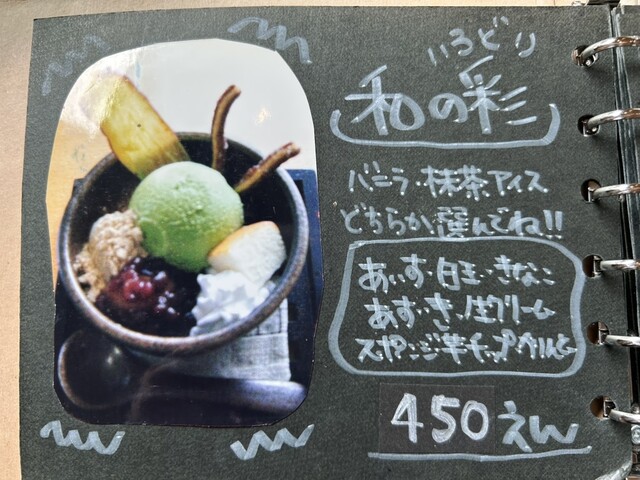 いろどり
和の彩
バニラ・抹茶アイス
どちらか選んでね!!
あいす・白玉・きなこ
あずき・生クリーム
スポンジ・芋チップ・かりんとう
450えん